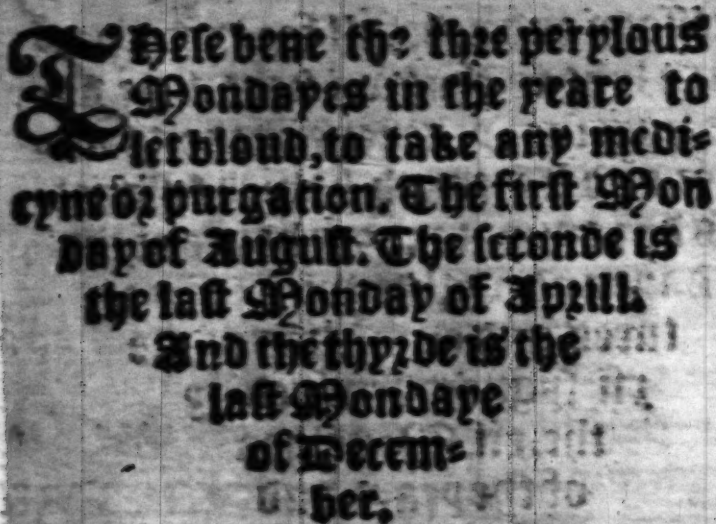 THese bene the thre perylous
Mondayes in the yeare to
let bloud, to take any medi=
cyne or purgation. The first Mon
day of August. The seconde is
the last Monday of Aprill.
And the thyrde is the
last Mondaye
of Decem=
ber.